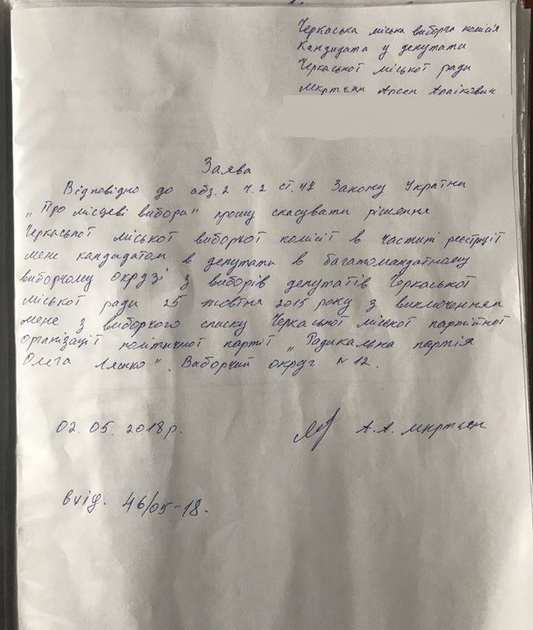 Черкаська міська виборча комісія
Кандидата у депутати
Черкаської міської ради
Мкртчян Арсен Араікович
Заява
Відповідно до абз. 2 ч. 2 ст. 48 Закону України
„Про місцеві вибори" прошу скасувати рішення
Черкаської міської виборчої комісії в частині реєстрації
мене кандидатом в депутати в багатомандатному
виборчому окрузі з виборів депутатів Черкаської
міської ради 25 жовтня 2015 року з виключенням
мене з виборчого списку Черкаської міської партійної
організації політичної партії „Радикальна партія
Олега Ляшко". Виборчий округ №12.
02.05.2018р. А.А. Мкртчян
вхід. 46/05-18.